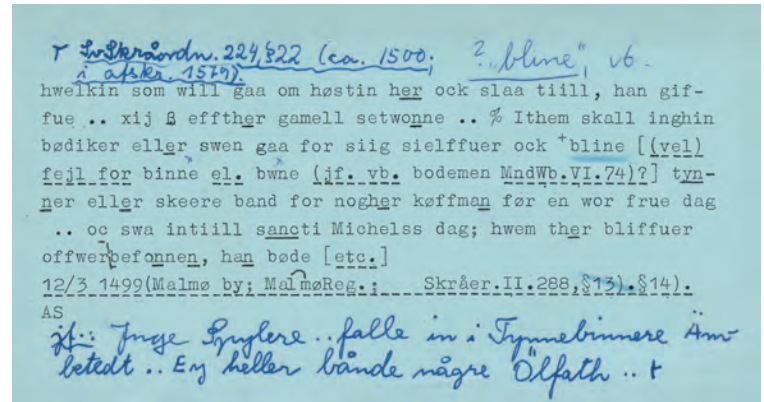 ┌ SvSkråordn. 224, §22 (ca. 1500; ? "bline", vb.
i afskr. 1579).
hwelkin som will gaa om høstin her ock slaa tiill, han gif-
fue .. xij ß effther gamell setwonne .. % Ithem skall inghin
bødiker eller swen gaa for siig sielffuer ock +bline [(vel)
fejl for binne el. bwne (jf. vb. bodemen MndWb.VI.74)?] tyn-
ner eller skeere band for nogher køffman før en wor frue dag
.. oc swa intiill sancti Michelss dag; hwem ther bliffuer
offwerbefonnen, han bøde [etc.]
12/3 1499(Malmø by; MalmøReg.; Skråer.II.288,§13).§14).
AS
jf.: Inge Spuglere .. falle in i Tynnebinnere Äm-
betedt .. Ey heller bånde någre Ölfath .. ┼